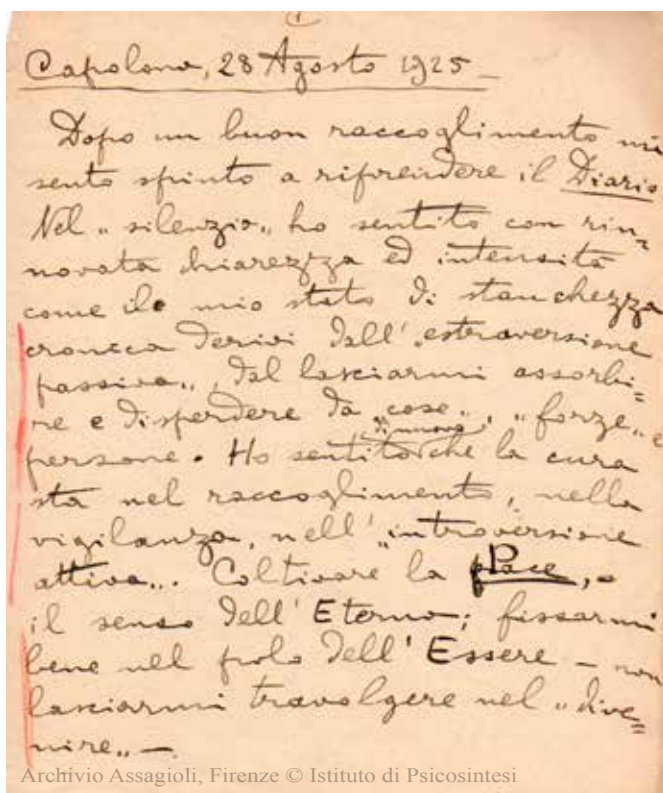 Capolona, 28 Agosto 1925 –
Dopo un buon raccoglimento mi
sento spinto a riprendere il Diario
Nel „silenzio„ ho sentito con rin=
novata chiarezza ed intensità
come il mio stato di stanchezza
cronica derivi dall' „estraversione
passiva„, dal lasciarmi assorbi=
re e disperdere da „cose„, „forze„ e
di nuovo
persone. Ho sentito che la cura
sta nel raccoglimento, nella
vigilanza, nell' „introversione
attiva„. Coltivare la Pace,
il senso dell' Eterno; fissarmi
bene nel polo dell' Essere – non
lasciarmi travolgere nel „dive=
nire„ –.
Archivio Assagioli, Firenze © Istituto di Psicosintesi